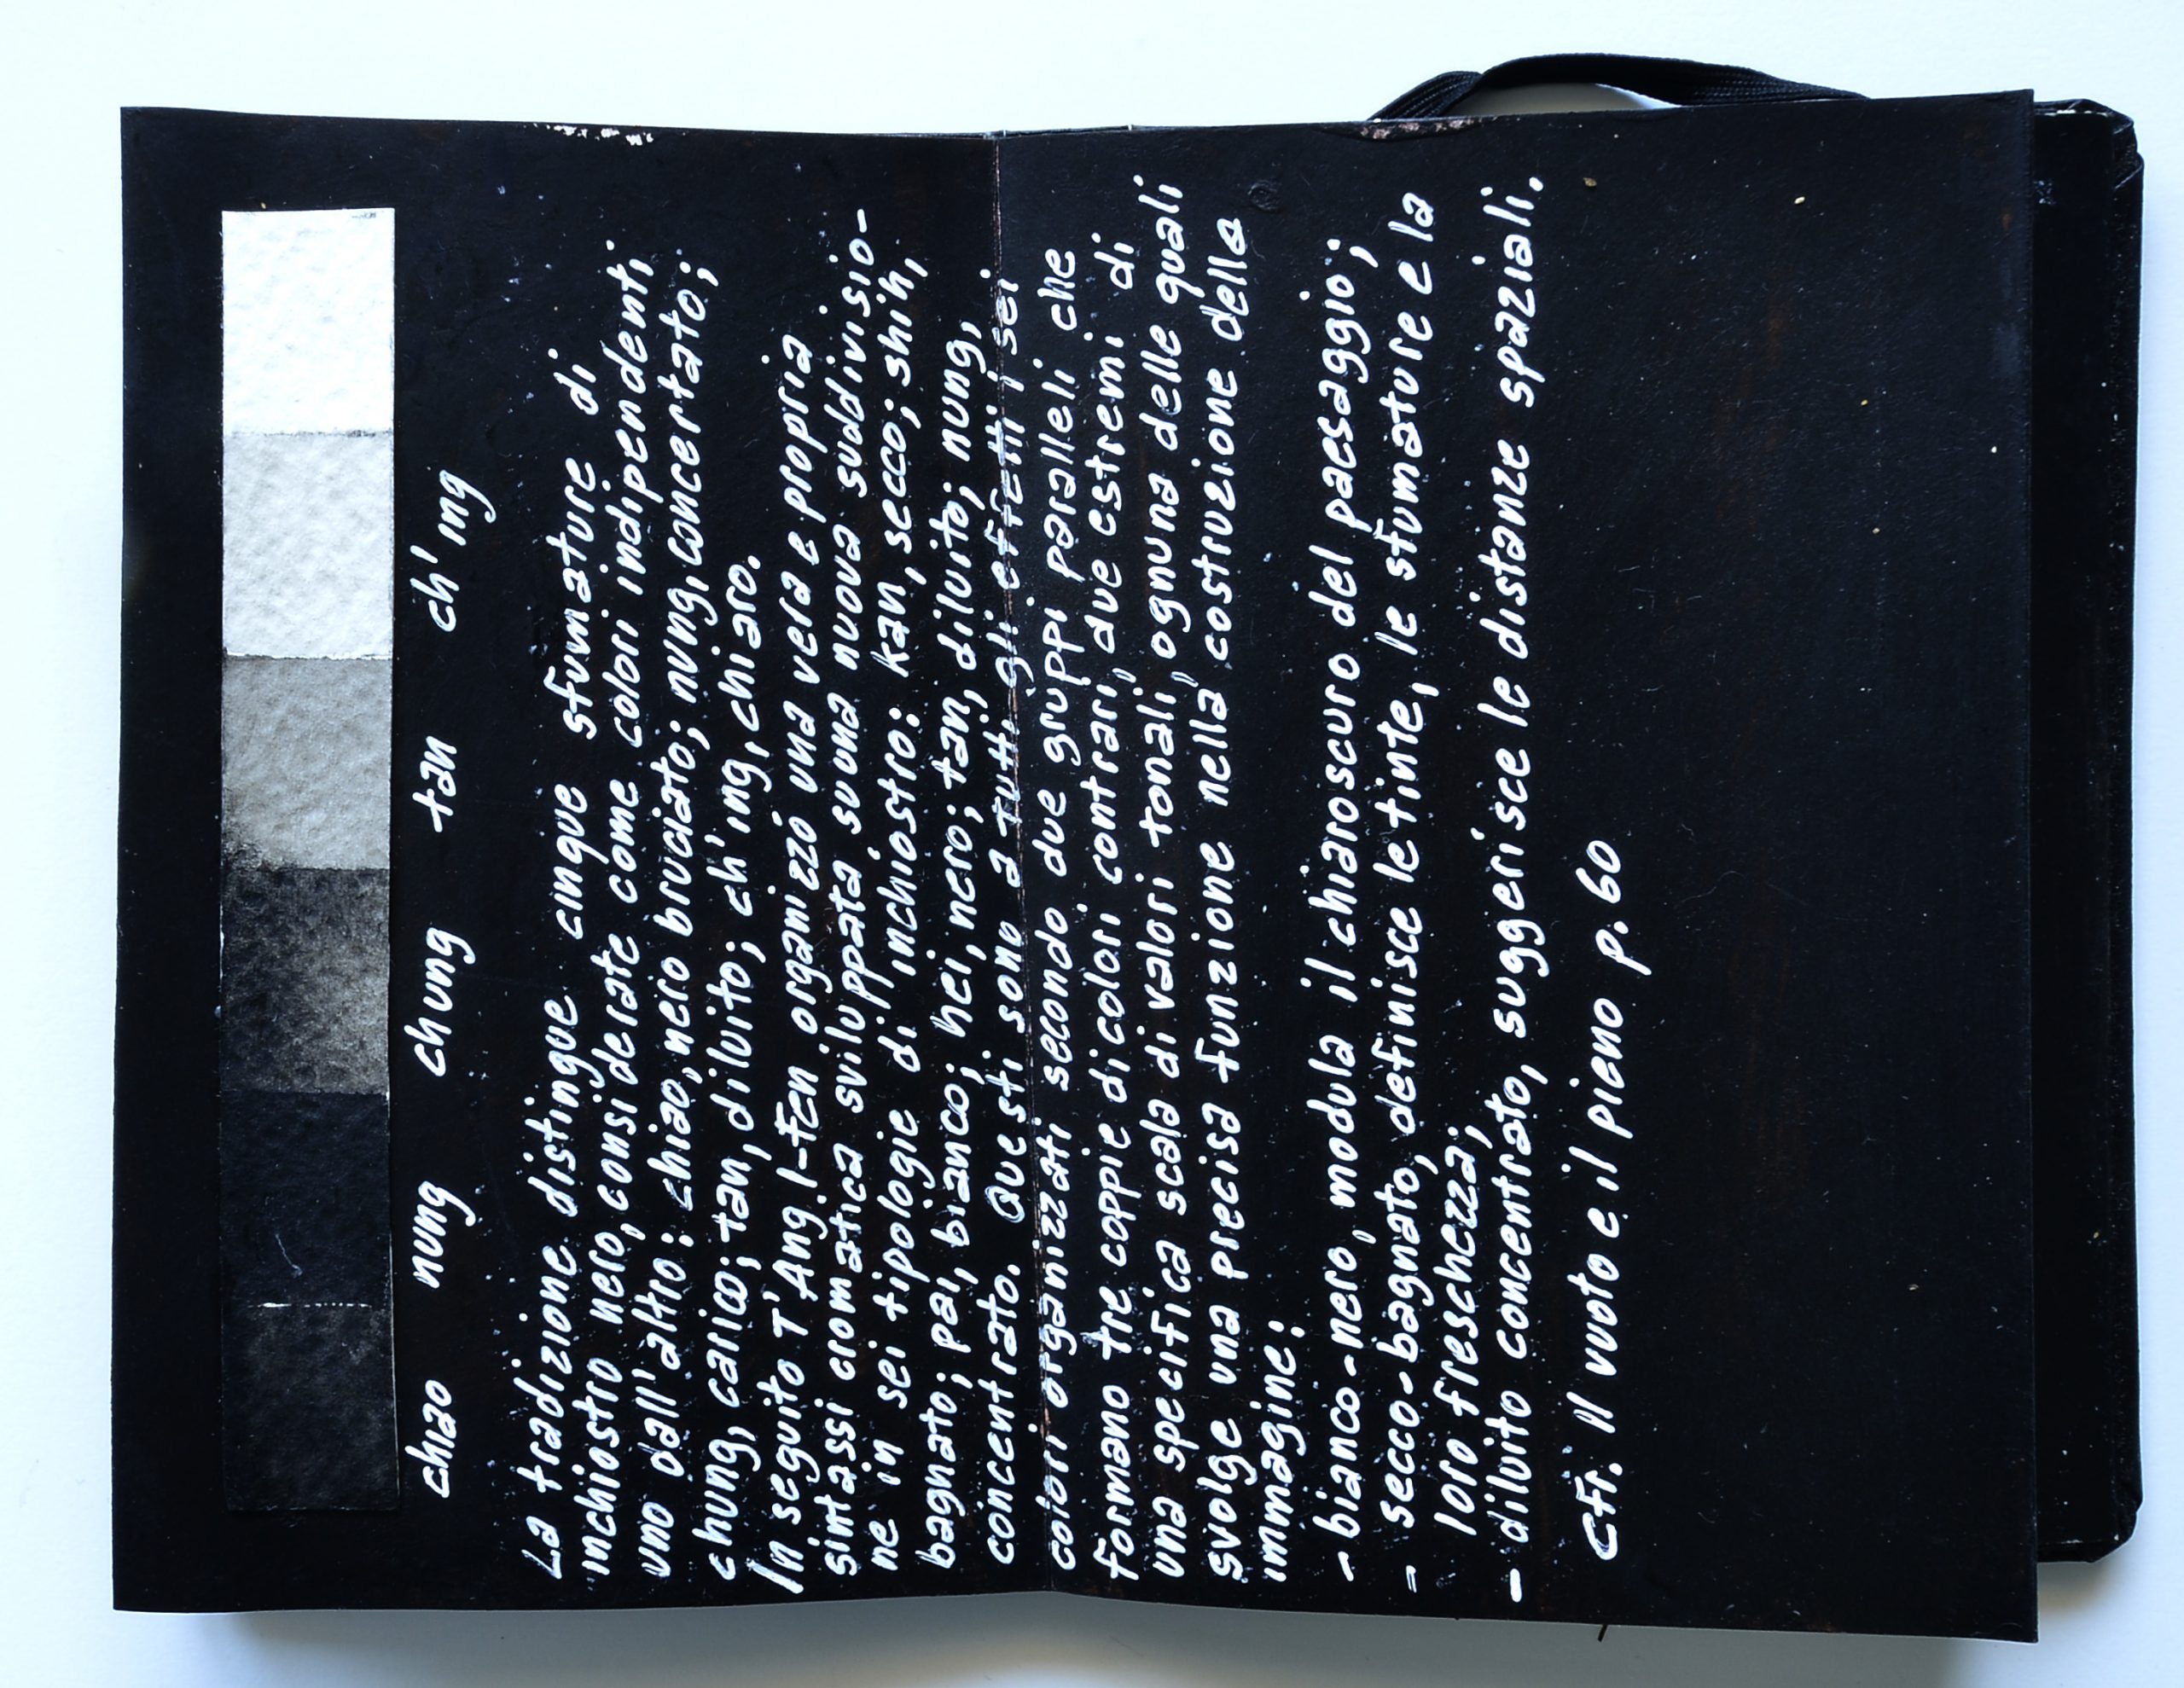 chiao nung chung tan ch'ing
La tradizione distingue cinque sfumature di
inchiostro nero, considerate come colori indipendenti
uno dall'altro: chiao, nero bruciato; nung, concertato;
chung, carico; tan, diluito; ch'ing, chiaro.
In seguito T'Ang I-Fen organizzò una vera e propria
sintassi cromatica sviluppata su una nuova suddivisio-
ne in sei tipologie di inchiostro: kan, secco; shih,
bagnato; pai, bianco; hei, nero; tan, diluito; nung,
concentrato. Questi sono a tutti gli effetti i sei
colori organizzati secondo due gruppi paralleli che
formano tre coppie di colori contrari, due estremi di
una specifica scala di valori tonali, ognuna delle quali
svolge una precisa funzione nella costruzione della
immagine:
- bianco-nero, modula il chiaroscuro del paesaggio;
- secco-bagnato, definisce le tinte, le sfumature e la
loro freschezza;
- diluito concentrato, suggerisce le distanze spaziali.
Cfr. Il vuoto e il pieno p. 60